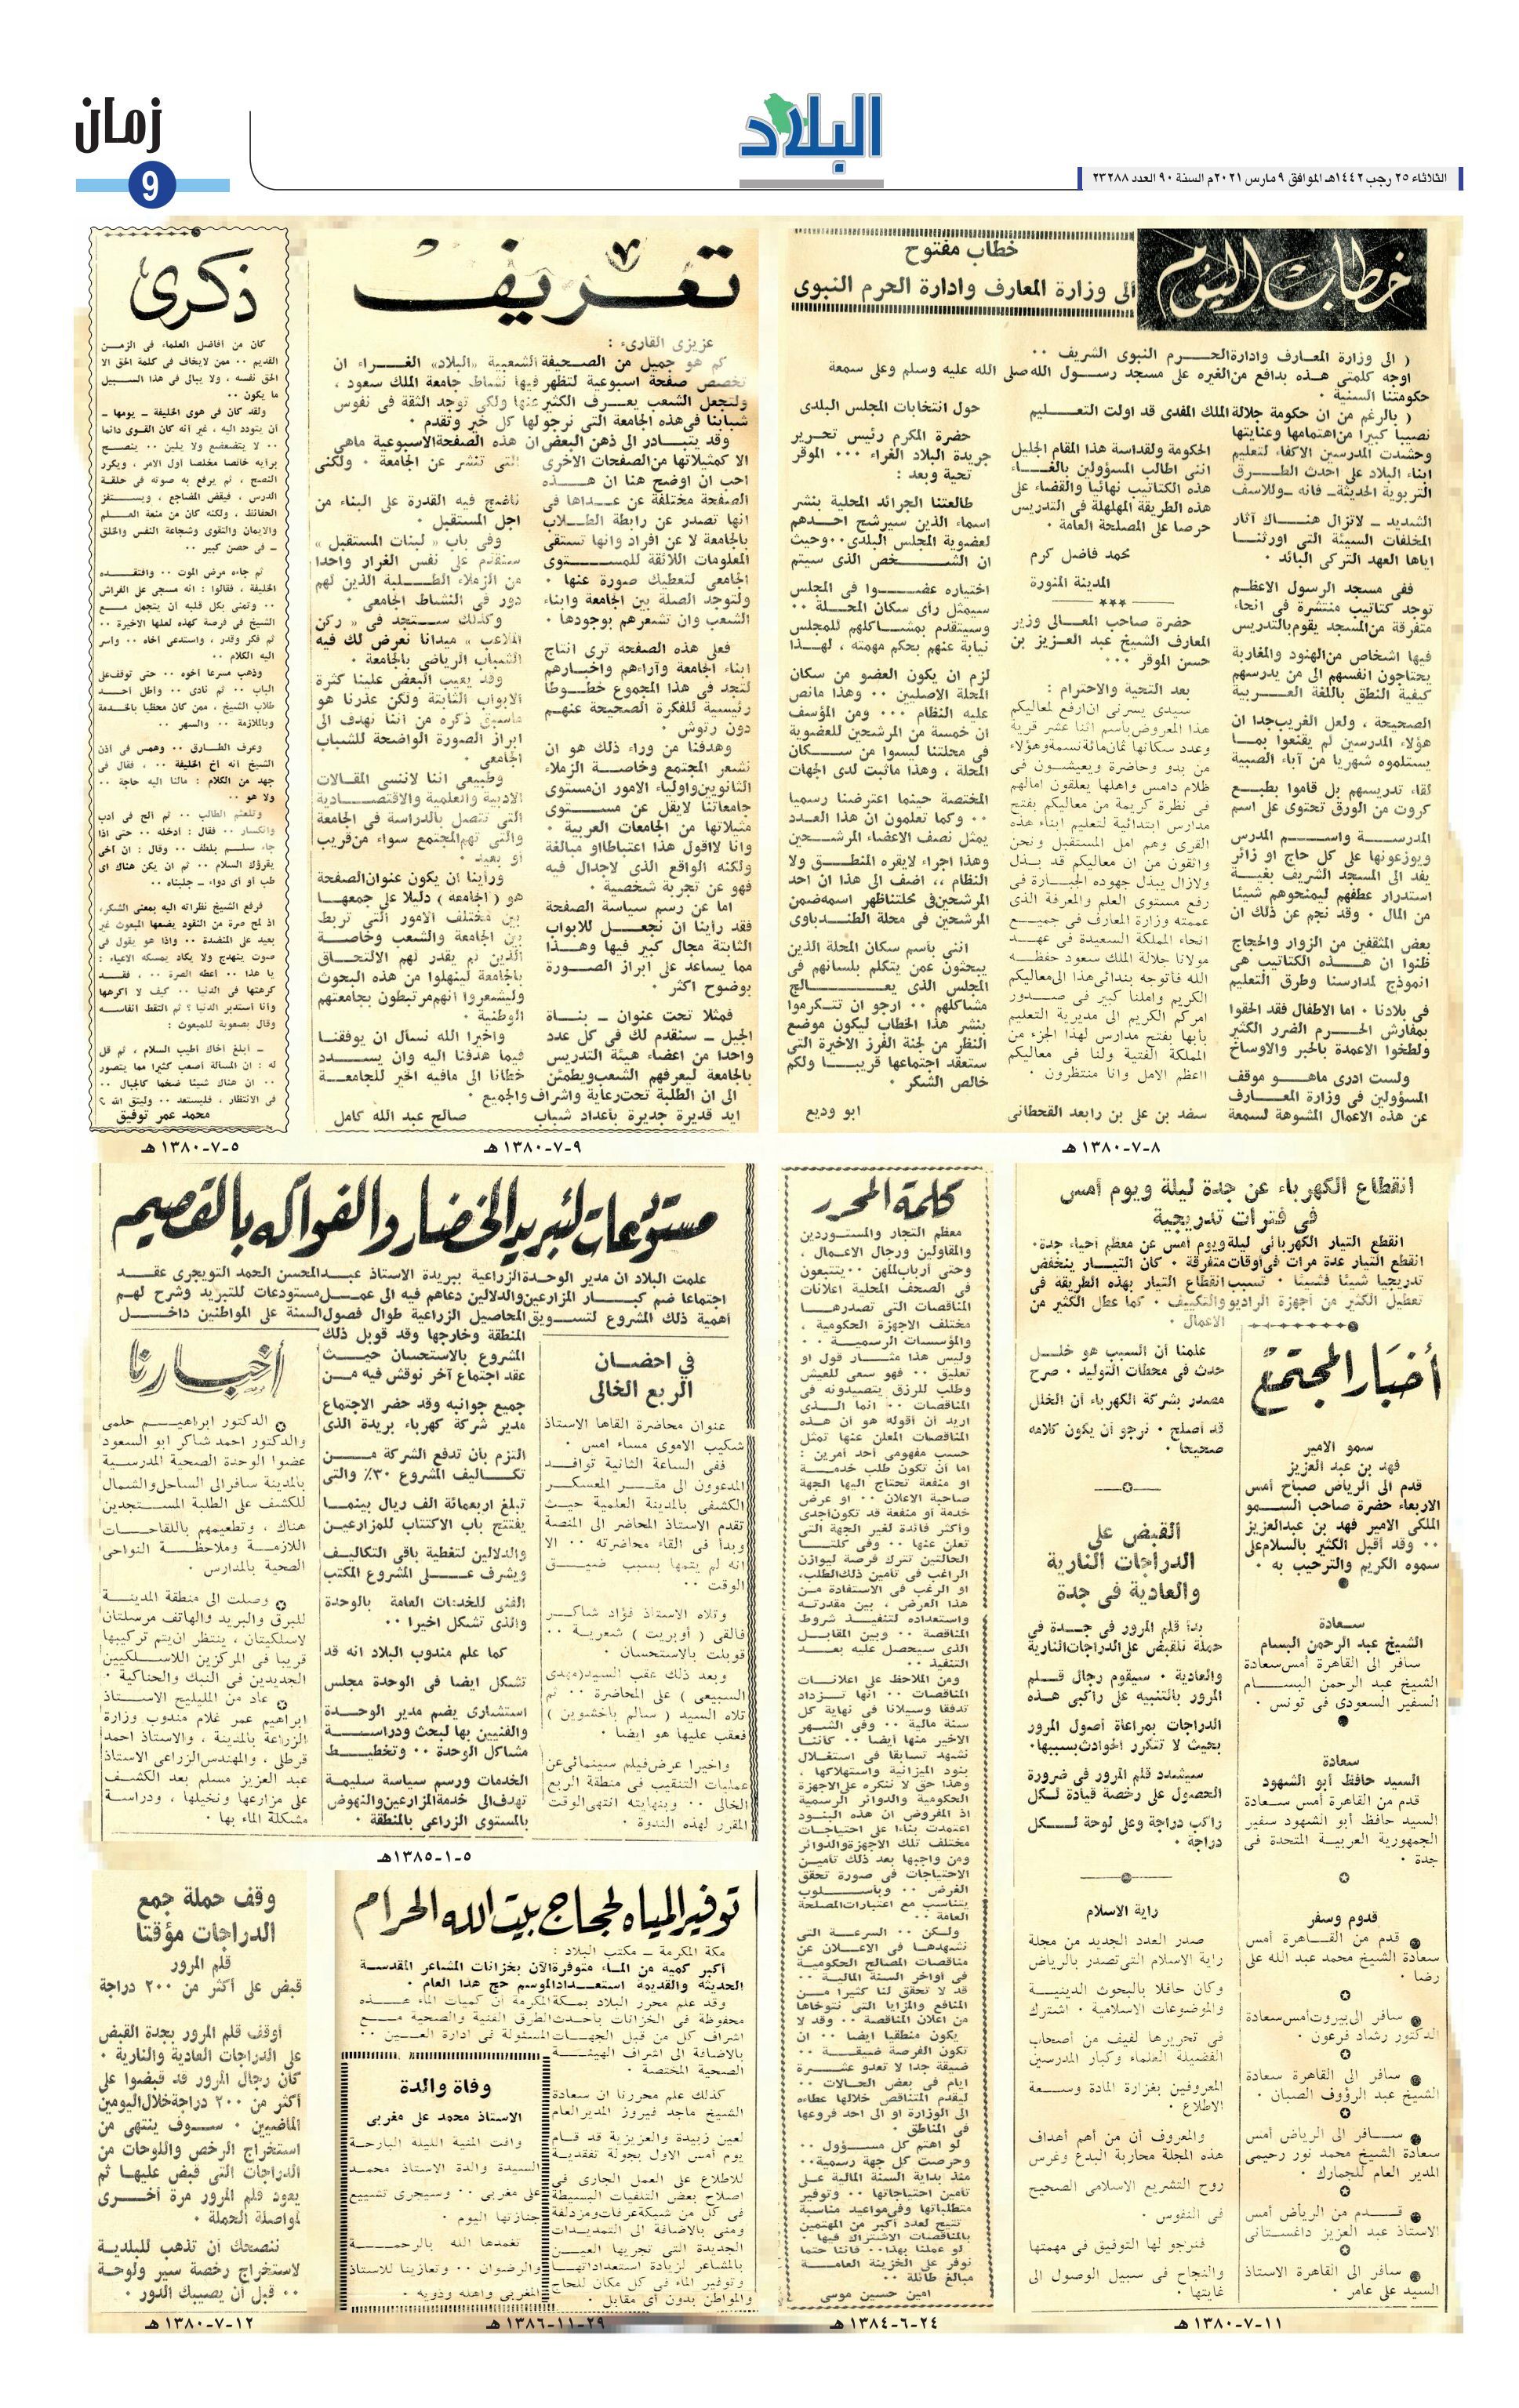 زمان
9
البلاد
الثلاثاء ٢٥ رجب ١٤٤٢هـ الموافق ٩ مارس ٢٠٢١م السنة ٩٠ العدد ٢٣٢٨٨
خطاب اليوم
خطاب مفتوح
الى وزارة المعارف وادارة الحرم النبوى
( الى وزارة المعارف وادارة الحرم النبوى الشريف ٠٠
اوجه كلمتى هذه بدافع من الغيره على مسجد رسول الله صلى الله عليه وسلم وعلى سمعة
حكومتنا السنية ٠
( بالرغم من ان حكومة جلالة الملك المفدى قد اولت التعليم
نصيبا كبيرا من اهتمامها وعنايتها
وحشدت المدرسين الاكفاء لتعليم
ابناء البلاد على احدث الطرق
التربوية الحديثة ـ فانه ـ وللاسف
الشديد ـ لاتزال هناك آثار
المخلفات السيئة التى اورثنا
اياها العهد التركى البائد ٠
ففى مسجد الرسول الاعظم
توجد كتاتيب منتشرة فى انحاء
متفرقة من المسجد يقوم بالتدريس
فيها اشخاص من الهنود والمغاربة
يحتاجون انفسهم الى من يدرسهم
كيفية النطق باللغة العربية
الصحيحة ، ولعل الغريب جدا ان
هؤلاء المدرسين لم يقنعوا بما
يستلموه شهريا من آباء الصبية
لقاء تدريسهم بل قاموا بطبع
كروت من الورق تحتوى على اسم
المدرسة واسم المدرس
ويوزعونها على كل حاج او زائر
يفد الى المسجد الشريف بغية
استدرار عطفهم ليمنحوهم شيئا
من المال ٠ وقد نجم عن ذلك ان
بعض المثقفين من الزوار والحجاج
ظنوا ان هذه الكتاتيب هى
انموذج لمدارسنا وطرق التعليم
فى بلادنا ٠ اما الاطفال فقد الحقوا
بمفارش الحرم الضرر الكثير
ولطخوا الاعمدة بالحبر والاوساخ
ولست ادرى ماهو موقف
المسؤولين فى وزارة المعارف
عن هذه الاعمال المشوهة لسمعة
الحكومة ولقداسة هذا المقام الجليل
اننى اطالب المسؤولين بالغاء
هذه الكتاتيب نهائيا والقضاء على
هذه الطريقة المهلهلة فى التدريس
حرصا على المصلحة العامة ٠
محمد فاضل كرم
المدينة المنورة
***
حضرة صاحب المعالى وزير
المعارف الشيخ عبد العزيز بن
حسن الموقر ٠٠٠
بعد التحية والاحترام :
سيدى يسرنى ان ارفع لمعاليكم
هذا المعروض باسم اثنا عشر قرية
وعدد سكانها ثمان مائة نسمة وهؤلاء
من بدو وحاضرة ويعيشون فى
ظلام دامس واهلها يعلقون امالهم
فى نظرة كريمة من معاليكم بفتح
مدارس ابتدائية لتعليم ابناء هذه
القرى وهم امل المستقبل ونحن
واثقون من ان معاليكم قد بذل
ولازال يبذل جهوده الجبارة فى
رفع مستوى العلم والمعرفة الذى
عممته وزارة المعارف فى جميع
انحاء المملكة السعيدة فى عهد
مولانا جلالة الملك سعود حفظه
الله فاتوجه بندائى هذا الى معاليكم
الكريم واهلنا كبير فى صدور
امركم الكريم الى مديرية التعليم
بابها بفتح مدارس لهذا الجزء من
المملكة الفتية ولنا فى معاليكم
اعظم الامل وانا منتظرون ٠
سعد بن على بن رابعد القحطانى
حول انتخابات المجلس البلدى
حضرة المكرم رئيس تحرير
جريدة البلاد الغراء ٠٠٠ الموقر
تحية وبعد :
طالعتنا الجرائد المحلية بنشر
اسماء الذين سيرشح احدهم
لعضوية المجلس البلدى ٠٠ وحيث
ان الشخص الذى سيتم
اختياره عضوا فى المجلس
سيمثل رأى سكان المحلة ٠٠
وسيتقدم بمشاكلهم للمجلس
نيابة عنهم بحكم مهمته ، لهذا
لزم ان يكون العضو من سكان
المحلة الاصليين ٠٠ وهذا مانص
عليه النظام ٠٠٠ ومن المؤسف
ان خمسة من المرشحين للعضوية
فى محلتنا ليسوا من سكان
المحلة ، وهذا ماثبت لدى الجهات
المختصة حينما اعترضنا رسميا
٠٠ وكما تعلمون ان هذا العدد
يمثل نصف الاعضاء المرشحين
وهذا اجراء لايقره المنطق ولا
النظام ،، اضف الى هذا ان احد
المرشحين فى محلتنا ظهر اسمه ضمن
المرشحين فى محلة الطندباوى
اننى باسم سكان المحلة الذين
يبحثون عمن يتكلم بلسانهم فى
المجلس الذى يعالج
مشاكلهم ٠٠ ارجو ان تتكرموا
بنشر هذا الخطاب ليكون موضع
النظر من لجنة الفرز الاخيرة التى
ستعقد اجتماعها قريبا ولكم
خالص الشكر ٠
ابو وديع
٨-٧-١٣٨٠هـ
تعريف
عزيزى القارىء :
كم هو جميل من الصحيفة الشعبية «البلاد» الغراء ان
تخصص صفحة اسبوعية لتظهر فيها نشاط جامعة الملك سعود ،
ولتجعل الشعب يعرف الكثير عنها ولكى توجد الثقة فى نفوس
شبابنا فى هذه الجامعة التى نرجو لها كل خير وتقدم ٠
وقد يتبادر الى ذهن البعض ان هذه الصفحة الاسبوعية ماهى
الا كمثيلاتها من الصفحات الاخرى التى تنشر عن الجامعة ٠ ولكنى
احب ان اوضح هنا ان هذه
الصفحة مختلفة عن عداها فى
انها تصدر عن رابطة الطلاب
بالجامعة لا عن افراد وانها تستقى
المعلومات اللائقة للمستوى
الجامعى لتعطيك صورة عنها ٠
ولتوجد الصلة بين الجامعة وابناء
الشعب وان تشعرهم بوجودها ٠
فعلى هذه الصفحة ترى انتاج
ابناء الجامعة وآراءهم واخبارهم
لتجد فى هذا المجموع خطوطا
رئيسية للفكرة الصحيحة عنهم
دون رتوش ٠
وهدفنا من وراء ذلك هو ان
نشعر المجتمع وخاصة الزملاء
الثانويين واولياء الامور ان مستوى
جامعاتنا لايقل عن مستوى
مثيلاتها من الجامعات العربية ٠
وانا لا اقول هذا اعتباطا او مبالغة
ولكنه الواقع الذى لاجدال فيه
فهو عن تجربة شخصية ٠
اما عن رسم سياسة الصفحة
فقد رأينا ان نجعل للابواب
الثابتة مجال كبير فيها وهذا
مما يساعد على ابراز الصورة
بوضوح اكثر ٠
فمثلا تحت عنوان ـ بناة
الجيل ـ سنقدم لك فى كل عدد
واحدا من اعضاء هيئة التدريس
بالجامعة ليعرفهم الشعب ويطمئن
الى ان الطلبة تحت رعاية واشراف
ايد قديرة جديرة باعداد شباب
ناضج فيه القدرة على البناء من
اجل المستقبل ٠
وفى باب « لبنات المستقبل »
سنقدم على نفس الغرار واحدا
من الزملاء الطلبة الذين لهم
دور فى النشاط الجامعى ٠
وكذلك ستجد فى « ركن
الملاعب » ميدانا نعرض لك فيه
الشباب الرياضى بالجامعة ٠
وقد يعيب البعض علينا كثرة
الابواب الثابتة ولكن عذرنا هو
ماسبق ذكره من اننا نهدف الى
ابراز الصورة الواضحة للشباب
الجامعى ٠
وطبيعى اننا لاننسى المقالات
الادبية والعلمية والاقتصادية
التى تتصل بالدراسة فى الجامعة
والتى تهم المجتمع سواء من قريب
أو بعيد ٠
ورأينا ان يكون عنوان الصفحة
هو ( الجامعه ) دليلا على جمعها
بين مختلف الامور التى تربط
بين الجامعة والشعب وخاصة
الذين لم يقدر لهم الالتحاق
بالجامعة لينهلوا من هذه البحوث
وليشعروا انهم مرتبطون بجامعتهم
الوطنية ٠
واخيرا الله نسأل ان يوفقنا
فيما هدفنا اليه وان يسدد
خطانا الى مافيه الخير للجامعة
والجميع ٠
صالح عبد الله كامل
٩-٧-١٣٨٠هـ
ذكرى
كان من افاضل العلماء فى الزمن
القديم ٠٠ ممن لايخاف فى كلمة الحق الا
الحق نفسه ، ولا يبالى فى هذا السبيل
ما يكون ٠٠
ولقد كان فى هوى الخليفة ـ يومها ـ
أن يتودد اليه ، غير انه كان القوى دائما
٠٠ لا يتضعضع ولا يلين ٠٠ ينصح
برأيه خالصا مخلصا اول الامر ، ويكرر
النصح ، ثم يرفع به صوته فى حلقة
الدرس ، فيقض المضاجع ، ويستفز
الحفائظ ، ولكنه كان من منعة العلم
والايمان والتقوى وشجاعة النفس والخلق
ـ فى حصن كبير ٠٠
ثم جاءه مرض الموت ٠٠ وافتقده
الخليفة ، فقالوا : انه مسجى على الفراش
٠٠ وتمنى بكل قلبه ان يتجمل مع
الشيخ فى فرصة كهذه لعلها الاخيرة ٠٠
ثم فكر وقدر ، واستدعى اخاه ٠٠ واسر
اليه الكلام ٠٠
وذهب مسرعا اخوه ٠٠ حتى توقف على
الباب ٠٠ ثم نادى ٠٠ واطل احد
طلاب الشيخ ، ممن كان محظيا بالخدمة
وبالملازمة ٠٠ والسهر ٠٠
وعرف الطارق ٠٠ وهمس فى اذن
الشيخ انه اخ الخليفة ٠٠ ، فقال فى
جهد من الكلام : مالنا اليه حاجة ٠٠
ولا هو ٠٠
وتلعثم الطالب ٠٠ ثم الح فى ادب
وانكسار ٠٠ فقال : ادخله ٠٠ حتى اذا
جاء سلم بلطف ٠٠ وقال : ان أخى
يقرؤك السلام ٠٠ ثم ان يكن هناك أى
طب أو أى دواء ـ جلبناه ٠٠
فرفع الشيخ نظراته اليه بمعنى الشكر،
اذ لمح صرة من النقود يضعها المبعوث غير
بعيد على المنضدة ٠٠ واذا هو يقول فى
صوت يتهدج ولا يكاد يمسكه الاعياء :
يا هذا ٠٠ اعطه الصرة ٠٠ ، فقد
كرهتها فى الدنيا ٠٠ كيف لا اكرهها
وأنا استدبر الدنيا ؟ ثم التقط انفاسه
وقال بصعوبة للمبعوث :
ـ ابلغ اخاك أطيب السلام ، ثم قل
له : ان المسالة أصعب كثيرا مما يتصور
٠٠ ان هناك شيئا ضخما كالجبال ٠٠
فى الانتظار ، فليستعد ٠٠ وليتق الله ؟
محمد عمر توفيق
٥-٧-١٣٨٠هـ
انقطاع الكهرباء عن جدة ليلة ويوم أمس
فى فترات تدريجية
انقطع التيار الكهربائى ليلة ويوم أمس عن معظم أحياء جدة٠
انقطع التيار عدة مرات فى أوقات متفرقة ٠ كان التيار ينخفض
تدريجيا شيئا فشيئا ٠ تسبب انقطاع التيار بهذه الطريقة فى
تعطيل الكثير من أجهزة الراديو والتكييف ٠ كما عطل الكثير من
الاعمال ٠
علمنا أن السبب هو خلل
حدث فى محطات التوليد ٠ صرح
مصدر بشركة الكهرباء أن الخلل
قد أصلح ٠ نرجو أن يكون كلامه
صحيحا ٠
القبض على
الدراجات النارية
والعادية فى جدة
بدأ قلم المرور فى جدة فى
حملة للقبض على الدراجات النارية
والعادية ٠ سيقوم رجال قلم
المرور بالتنبيه على راكبى هذه
الدراجات بمراعاة أصول المرور
بحيث لا تتكرر الحوادث بسببها٠
سيشدد قلم المرور فى ضرورة
الحصول على رخصة قيادة لكل
راكب دراجة وعلى لوحة لكل
دراجة ٠
راية الاسلام
صدر العدد الجديد من مجلة
راية الاسلام التى تصدر بالرياض
وكان حافلا بالبحوث الدينية
والموضوعات الاسلامية ٠ اشترك
فى تحريرها لفيف من أصحاب
الفضيلة العلماء وكبار المدرسين
المعروفين بغزارة المادة وسعة
الاطلاع ٠
والمعروف أن من أهم أهداف
هذه المجلة محاربة البدع وغرس
روح التشريع الاسلامى الصحيح
فى النفوس ٠
فنرجو لها التوفيق فى مهمتها
والنجاح فى سبيل الوصول الى
غايتها ٠
أخبار المجتمع
سمو الامير
فهد بن عبد العزيز
قدم الى الرياض صباح أمس
الاربعاء حضرة صاحب السمو
الملكى الامير فهد بن عبد العزيز
٠٠ وقد أقبل الكثير بالسلام على
سموه الكريم والترحيب به ٠
سعادة
الشيخ عبد الرحمن البسام
سافر الى القاهرة أمس سعادة
الشيخ عبد الرحمن البسام
السفير السعودى فى تونس ٠
سعادة
السيد حافظ أبو الشهود
قدم من القاهرة أمس سعادة
السيد حافظ أبو الشهود سفير
الجمهورية العربية المتحدة فى
جدة ٠
قدوم وسفر
قدم من القاهرة أمس
سعادة الشيخ محمد عبد الله على
رضا ٠
سافر الى بيروت أمس سعادة
الدكتور رشاد فرعون ٠
سافر الى القاهرة سعادة
الشيخ عبد الرؤوف الصبان ٠
سافر الى الرياض أمس
سعادة الشيخ محمد نور رحيمى
المدير العام للجمارك ٠
قدم من الرياض أمس
الاستاذ عبد العزيز داغستانى
سافر الى القاهرة الاستاذ
السيد على عامر ٠
١١-٧-١٣٨٠هـ
كلمة المحرر
معظم التجار والمستوردين
والمقاولين ورجال الاعمال ،
وحتى أرباب المهن ٠٠ يتتبعون
فى الصحف المحلية اعلانات
المناقصات التى تصدرها
مختلف الاجهزة الحكومية ،
والمؤسسات الرسمية ٠٠
وليس هذا مثار قول او
تعليق ٠٠ فهو سعى للعيش
وطلب للرزق يتصيدونه فى
المناقصات ٠٠ انما الذى
اريد أن أقوله هو أن هذه
المناقصات المعلن عنها تمثل
حسب مفهومى أحد أمرين :
اما أن تكون طلب خدمة
او منفعة تحتاج اليها الجهة
صاحبة الاعلان ٠٠ او عرض
خدمة أو منفعة قد تكون أجدى
وأكثر فائدة لغير الجهة التى
تعلن عنها ٠٠ وفى كلتا
الحالتين تترك فرصة ليوازن
الراغب فى تأمين ذلك الطلب،
او الرغب فى الاستفادة من
هذا العرض ، بين مقدرته
واستعداده لتنفيذ شروط
المناقصة ٠٠ وبين المقابل
الذى سيحصل عليه بعد
التنفيذ ٠٠
ومن الملاحظ على اعلانات
المناقصات ٠٠ انها تزداد
تدفقا وسيلانا فى نهاية كل
سنة مالية ٠٠ وفى الشهر
الاخير منها أيضا ٠٠ كأننا
نشهد تسابقا فى استغلال
بنود الميزانية واستهلاكها ،
وهذا حق لا ننكره على الاجهزة
الحكومية والدوائر الرسمية
اذ المفروض ان هذه البنود
اعتمدت بناءا على احتياجات
مختلف تلك الاجهزة والدوائر
ومن واجبها بعد ذلك تأمين
الاحتياجات فى صورة تحقق
الغرض ٠٠ وبأسلوب
يتناسب مع اعتبارات المصلحة
العامة ٠٠
ولكن ٠٠ السرعة التى
نشهدها فى الاعلان عن
مناقصات المصالح الحكومية
فى أواخر السنة المالية ٠٠
قد لا تحقق لنا كثيرا من
المنافع والمزايا التى نتوخاها
من اعلان المناقصة ٠٠ وقد لا
يكون منطقيا ايضا ٠٠ ان
تكون الفرصة ضيقة ٠٠
ضيقة جدا لا تعدو عشرة
ايام فى بعض الحالات ٠٠
ليقدم المتناقص خلالها عطاءه
الى الوزارة او الى احد فروعها
فى المناطق ٠
لو اهتم كل مسؤول ٠٠
وحرصت كل جهة رسمية ٠٠
منذ بداية السنة المالية على
تأمين احتياجاتها ٠٠ وتوفير
متطلباتها وفى مواعيد مناسبة
تتيح لعدد أكبر من المهتمين
بالمناقصات الاشتراك فيها ٠
لو عملنا بهذا ٠٠ فاننا حتما
نوفر على الخزينة العامة
مبالغ طائلة ٠٠
امين حسين موسى
٢٤-٦-١٣٨٤هـ
مستودعات لتبريد الخضار والفواكه بالقصيم
علمت البلاد ان مدير الوحدة الزراعية ببريدة الاستاذ عبد المحسن الحمد التويجرى عقد
اجتماعا ضم كبار المزارعين والدلالين دعاهم فيه الى عمل مستودعات للتبريد وشرح لهم
أهمية ذلك المشروع لتسويق المحاصيل الزراعية طوال فصول السنة على المواطنين داخل
المنطقة وخارجها وقد قوبل ذلك
المشروع بالاستحسان حيث
عقد اجتماع آخر نوقش فيه من
جميع جوانبه وقد حضر الاجتماع
مدير شركة كهرباء بريدة الذى
التزم بأن تدفع الشركة من
تكاليف المشروع ٣٠٪ والتى
تبلغ اربعمائة الف ريال بينما
يفتتح باب الاكتتاب للمزارعين
والدلالين لتغطية باقى التكاليف
ويشرف على المشروع المكتب
الفنى للخدمات العامة بالوحدة
والذى تشكل اخيرا ٠٠
كما علم مندوب البلاد انه قد
تشكل ايضا فى الوحدة مجلس
استشارى يضم مدير الوحدة
والفنيين بها لبحث ودراسة
مشاكل الوحدة ٠٠ وتخطيط
الخدمات ورسم سياسة سليمة
تهدف الى خدمة المزارعين والنهوض
بالمستوى الزراعى بالمنطقة ٠
فى احضان
الربع الخالى
عنوان محاضرة القاها الاستاذ
شكيب الاموى مساء امس ٠
ففى الساعة الثانية توافد
المدعوون الى مقر المعسكر
الكشفى بالمدينة العلمية حيث
تقدم الاستاذ المحاضر الى المنصة
وبدأ فى القاء محاضرته ٠٠ الا
انه لم يتمها بسبب ضيق
الوقت ٠٠
وتلاه الاستاذ فؤاد شاكر
فالقى ( أوبريت ) شعرية ٠٠
قوبلت بالاستحسان ٠
وبعد ذلك عقب السيد (مهدى
السبيعى ) على المحاضرة ٠٠ ثم
تلاه السيد ( سالم باخشوين )
فعقب عليها هو ايضا ٠
واخيرا عرض فيلم سينمائى عن
عمليات التنقيب فى منطقة الربع
الخالى ٠٠ وبنهايته انتهى الوقت
المقرر لهذه الندوة ٠
أخبارنا
الدكتور ابراهيم حلمى
والدكتور احمد شاكر ابو السعود
عضوا الوحدة الصحية المدرسية
بالمدينة سافر الى الساحل والشمال
للكشف على الطلبة المستجدين
هناك ، وتطعيمهم باللقاحات
اللازمة وملاحظة النواحى
الصحية بالمدارس ٠
وصلت الى منطقة المدينة
للبرق والبريد والهاتف مرسلتان
لاسلكيتان ، ينتظر ان يتم تركيبها
قريبا فى المركزين اللاسلكيين
الجديدين فى النبك والحناكية ٠
عاد من المليليح الاستاذ
ابراهيم عمر غلام مندوب وزارة
الزراعة بالمدينة ، والاستاذ احمد
قرطلى ، والمهندس الزراعى الاستاذ
عبد العزيز مسلم بعد الكشف
على مزارعها ونخيلها ، ودراسة
مشكلة الماء بها ٠
٥-١-١٣٨٥هـ
توفير المياه لحجاج بيت الله الحرام
مكة المكرمة ـ مكتب البلاد :
أكبر كمية من الماء متوفرة الآن بخزانات المشاعر المقدسة
الحديثة والقديمة استعدادا لموسم حج هذا العام ٠
وقد علم محرر البلاد بمكة المكرمة أن كميات الماء هذه
محفوظة فى الخزانات بأحدث الطرق الفنية والصحية مع
اشراف كل من قبل الجهات المسئولة فى ادارة العين ٠٠
بالاضافة الى اشراف الهيئة
الصحية المختصة ٠
كذلك علم محررنا ان سعادة
الشيخ ماجد فيروز المدير العام
لعين زبيدة والعزيزية قد قام
يوم أمس الاول بجولة تفقدية
للاطلاع على العمل الجارى فى
اصلاح بعض التلفيات البسيطة
فى كل من شبكة عرفات ومزدلفة
ومنى بالاضافة الى التمديدات
الجديدة التى تجريها العين
بالمشاعر لزيادة استعداداتها
وتوفير الماء فى كل مكان للحاج
والمواطن بدون أى مقابل ٠
وفاة والدة
الاستاذ محمد على مغربى
وافت المنية الليلة البارحة
السيدة والدة الاستاذ محمد
على مغربى ٠٠ وسيجرى تشييع
جنازتها اليوم ٠
تغمدها الله بالرحمة
والرضوان ٠٠ وتعازينا للاستاذ
المغربى واهله وذويه ٠
٢٩-١١-١٣٨٦هـ
وقف حملة جمع
الدراجات مؤقتا
قلم المرور
قبض على أكثر من ٢٠٠ دراجة
أوقف قلم المرور بجدة القبض
على الدراجات العادية والنارية ٠
كان رجال المرور قد قبضوا على
أكثر من ٢٠٠ دراجة خلال اليومين
الماضيين ٠ سوف ينتهى من
استخراج الرخص واللوحات من
الدراجات التى قبض عليها ثم
يعود قلم المرور مرة أخرى
لمواصلة الحملة ٠
ننصحك أن تذهب للبلدية
لاستخراج رخصة سير ولوحة
٠٠ قبل أن يصيبك الدور ٠
١٢-٧-١٣٨٠هـ